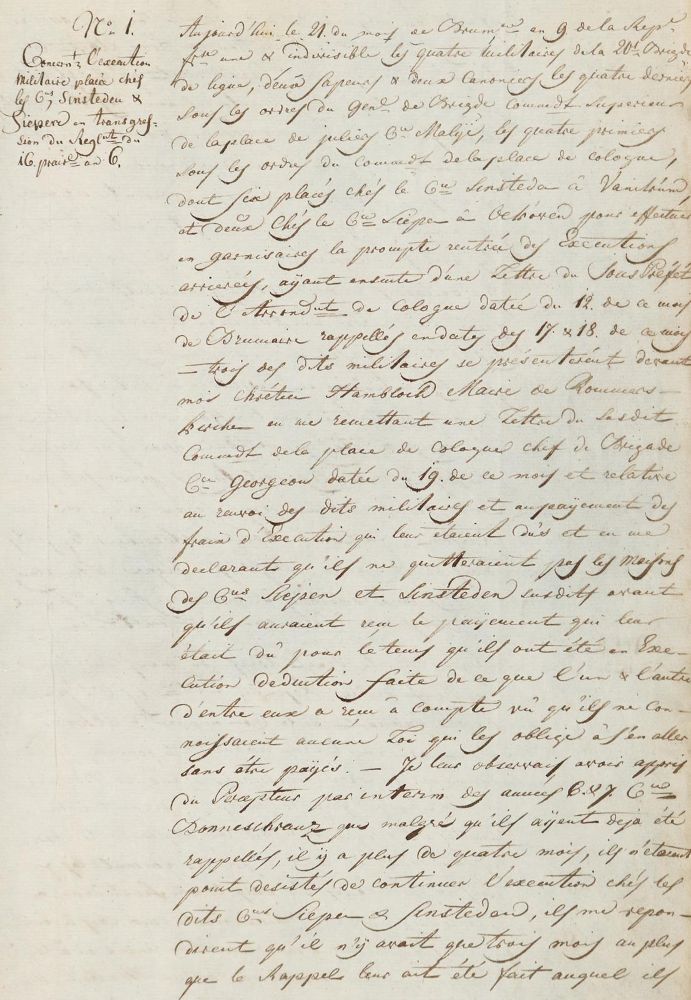 N° 1.
Concernt. l'execution
militaire placée chés
les Cns. Sinsteden &
Siepere en transgres-
sion du Reglnt. du
16. prairal an 6.
Aujourd'hui le 21. du mois de Brumre an 9 de la Repe.
frse une & indivisible les quatre militaires de la 20e. Brigde
de ligne, deux sapeurs & deux canoniers les quatre derniers
sous les ordres du Genl. de Brigde commdt Superieur
de la place de juliers Cen Malÿe, les quatre premiers
sous les ordres du Commdt de la place de cologne,
dont six placés chés le Cen Sinsteden à
et deux chés le Cen Siepen à pour effectuer
en garnisaires la prompte rentrée des Executions
arrierées, aÿant ensuite d'une Lettre du Sous Préfet
de l'Arrondnt de Cologne datée du 12. de ce mois
de Brumaire rappellés en dates des 17. & 18. de ce mois
– trois des dits militaires se présenterent devant
moi Chrétien Hambloch Maire de Rommers-
kirchen en me remettant une Lettre du susdit
Commdt de la place de Cologne chef de Brigade
Cen Georgeon datée du 19. de ce mois et relative
au renvoi des dits militaires et au paÿement des
frais d'Execution qui leur étaient dûs et en me
declarant qu'ils ne quitteraient pas les maisons
des Cens Siepen et Sinsteden susdits avant
qu'ils auraient reçu le paÿement qui leur
était dû pour le tems qu'ils ont été en Exe-
cution deduction faite de ce que l'un & l'autre
d'entre eux a reçu à compte vû qu'ils ne con-
noissaient aucune Loi qui les oblige à s'en aller
sans être paÿés. – Je leur observais avoir appris
du Percepteur par interm des années 6. & 7. Cen
Donneschranz que malgré qu'ils aÿent deja été
rappellés, il ÿ a plus de quatre mois, ils n'étaient
point desistés de continuer l'execution chés les
dits Cens Siepen & Sinsteden, ils me repon-
dirent qu'il n'ÿ avait que trois mois au plus
que le Rappel leur ait été fait auquel ils